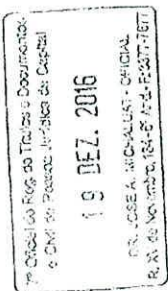 7º Oficial de Reg. de Títulos e Documentos
e Civil de Pessoa Jurídica da Capital
19 DEZ. 2016
DR. JOSÉ A. MICHALUAT - OFICIAL
R. XV de Novembro, 184-6º And.